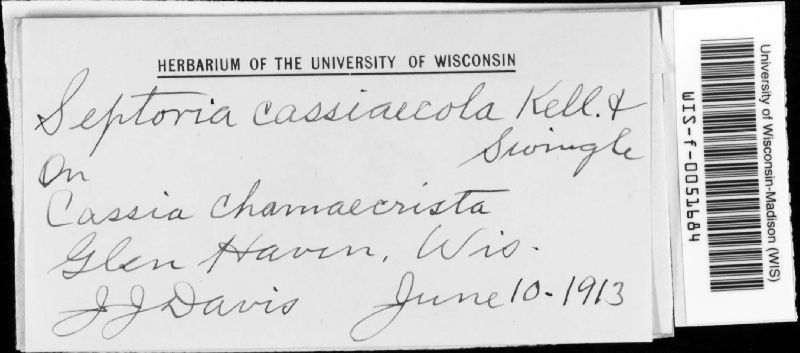 HERBARIUM OF THE UNIVERSITY OF WISCONSIN
Septoria cassiaecola Kell. &
Swingle
On
Cassia chamaecrista
Glen Haven, Wis.
J J Davis June 10-1913
University of Wisconsin-Madison (WIS)
WIS-f-0051684